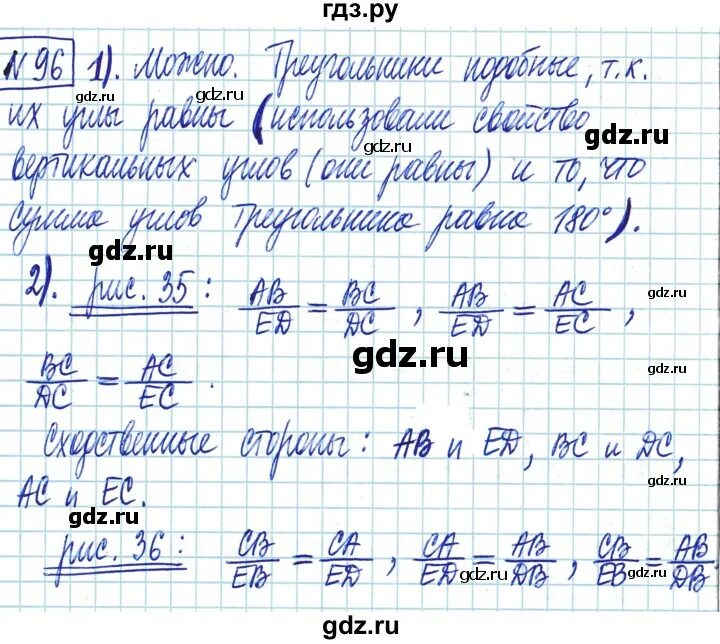 гдз.ру
№96 1). Можно. Треугольники подобные, т.к.
gdz.ru
их углы равны (использовали свойство
gdz.ru
gdz.ru
вертикальных углов (они равны) и то, что
сумма углов треугольника равна 180°).
gdz.ru
2). рис. 35: AB/ED = BC/DC, AB/ED = AC/EC,
gdz.ru
gdz.ru
BC/DC = AC/EC.
gdz.ru
gdz.ru
Сходственные стороны: AB и ED, BC и DC,
gdz.ru
AC и EC.
gdz.ru
рис. 36: CB/EB = CA/ED, CA/ED = AB/DB, CB/EB = AB/DB.
gdz.ru
gdz.ru
gdz.ru